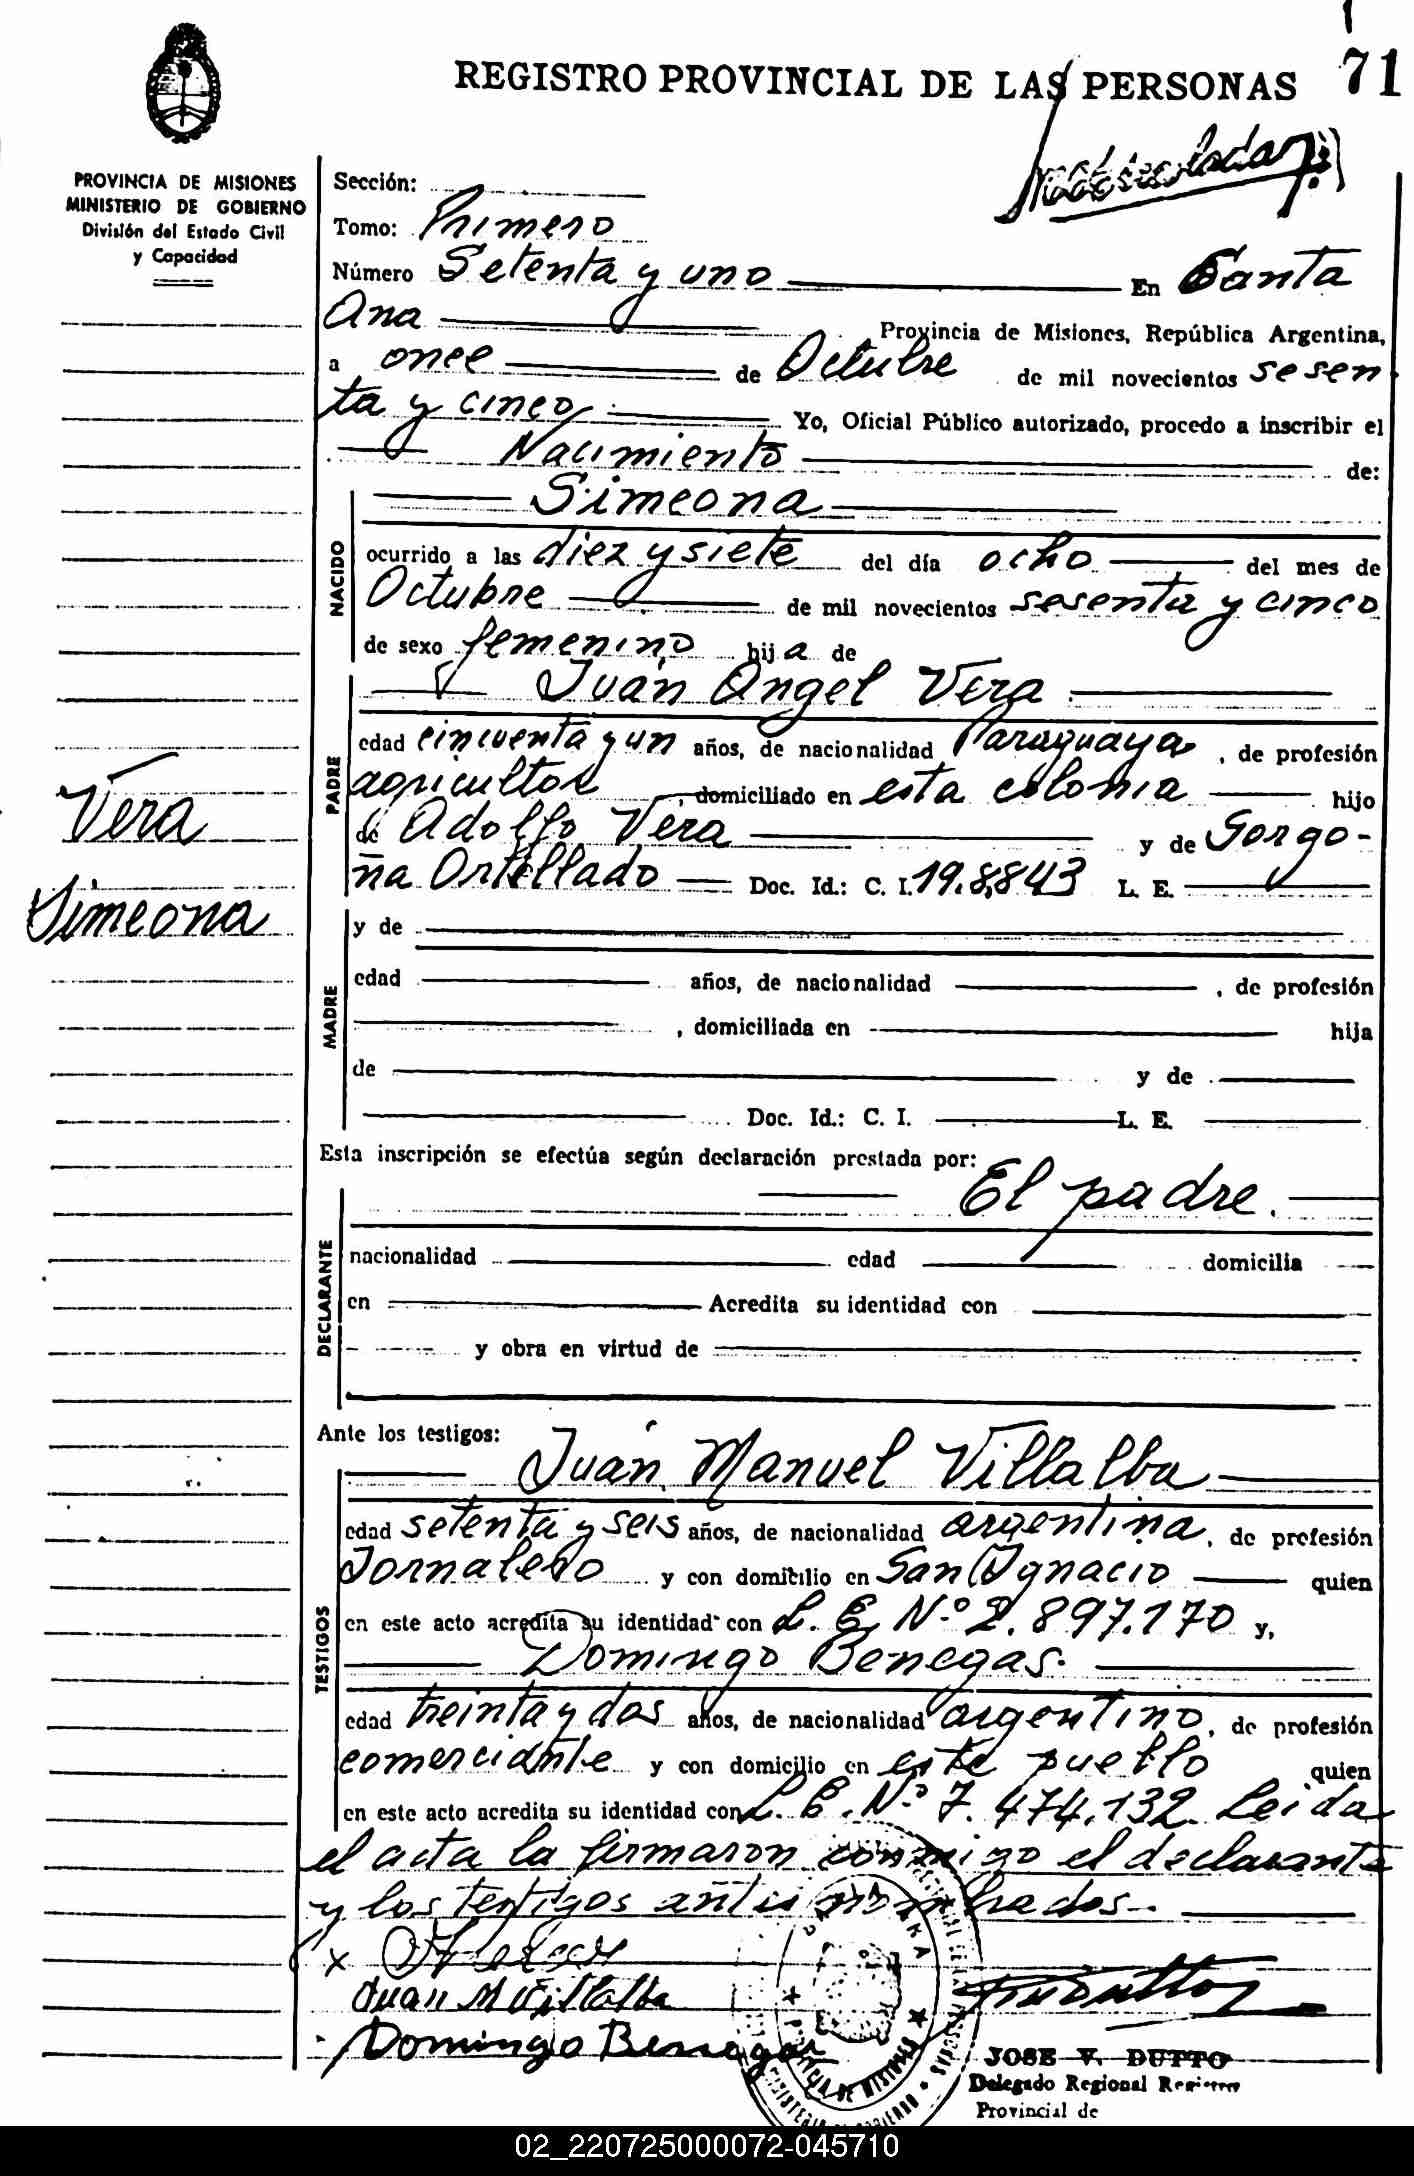 71
REGISTRO PROVINCIAL DE LAS PERSONAS
PROVINCIA DE MISIONES
MINISTERIO DE GOBIERNO
División del Estado Civil
y Capacidad
Vera
Simeona
Sección:
Tomo: Primero
Número Setenta y uno En Santa
Ana Provincia de Misiones, República Argentina,
a once de Octubre de mil novecientos sesen
ta y cinco Yo, Oficial Público autorizado, procedo a inscribir el
Nacimiento de:
NACIDO
Simeona
ocurrido a las diez y siete del día ocho del mes de
Octubre de mil novecientos sesenta y cinco
de sexo femenino hija de
PADRE
Juan Angel Vera
edad cincuenta y un años, de nacionalidad Paraguaya, de profesión
agricultor, domiciliado en esta colonia hijo
de Adolfo Vera y de Gorgo-
ña Ortellado Doc. Id.: C. I. 19.8843 L. E.
MADRE
y de
edad años, de nacionalidad , de profesión
, domiciliada en hija
de y de
Doc. Id.: C. I. L. E.
Esta inscripción se efectúa según declaración prestada por:
DECLARANTE
El padre.
nacionalidad edad domicilia
en Acredita su identidad con
y obra en virtud de
Ante los testigos:
TESTIGOS
Juan Manuel Villalba
edad setenta y seis años, de nacionalidad argentina, de profesión
Jornalero y con domicilio en San Ignacio quien
en este acto acredita su identidad con L. E. N.º 2.897.170 y,
Domingo Benegas.
edad treinta y dos años, de nacionalidad argentino, de profesión
comerciante y con domicilio en este pueblo quien
en este acto acredita su identidad con L. E. N.º 7.474.132 Leida
el acta la firmaron conmigo el declarante
y los testigos antes nombrados.-
x
Juan M Villalba
Domingo Benegas
JOSE V. DUTTO
Delegado Regional Registro
Provincial de
02_220725000072-045710